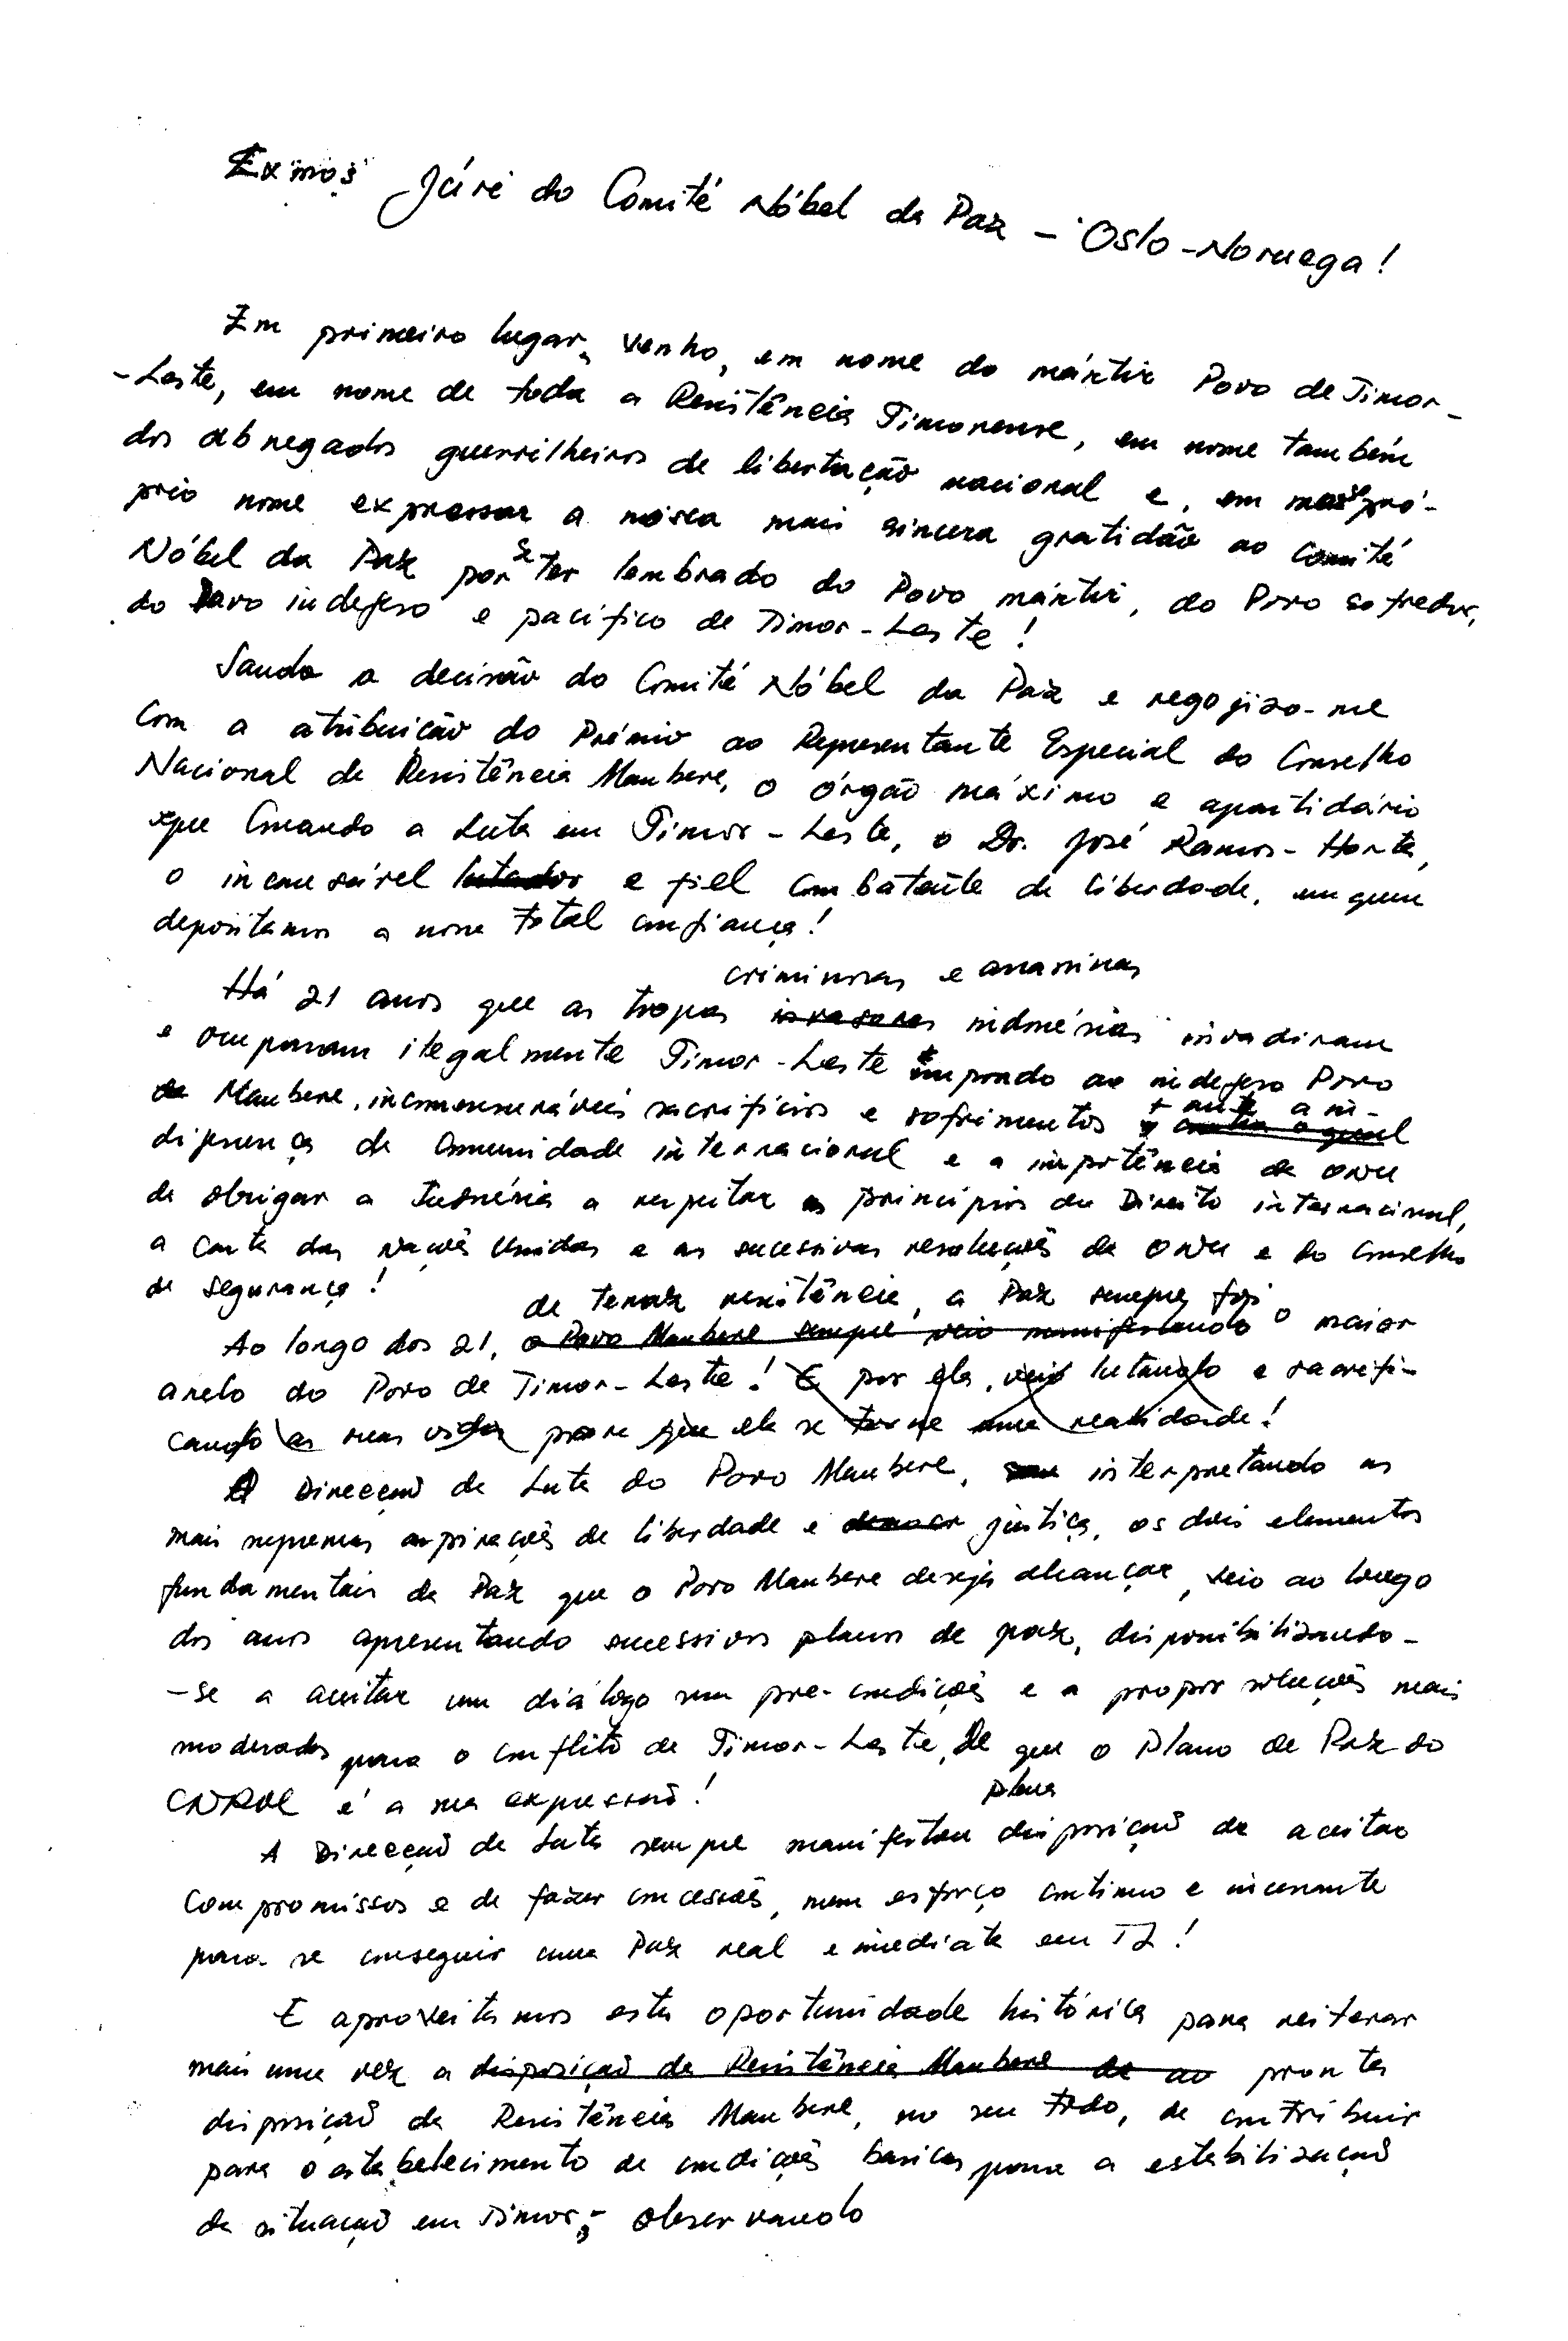 Exmos Júri do Comité Nóbel da Paz - Oslo - Noruega!
Em primeiro lugar, venho, em nome do mártir Povo de Timor-
-Leste, em nome de toda a Resistência Timorense, em nome também
dos abnegados guerrilheiros de libertação nacional e, em meu pró-
prio nome expressar a nossa mais sincera gratidão ao Comité
Nóbel da Paz por se ter lembrado do Povo mártir, do Povo sofredor,
do Povo indefeso e pacífico de Timor-Leste!
Saudo a decisão do Comité Nóbel da Paz e regojizo-me
com a atribuição do Prémio ao Representante Especial do Conselho
Nacional da Resistência Maubere, o órgão máximo e apartidário
que Comanda a Luta em Timor-Leste, o Dr. José Ramos-Horta,
o incansável lutador e fiel combatente da liberdade, em quem
depositamos a nossa total confiança!
criminosas e assassinas
Há 21 anos que as tropas invasoras indonésias invadiram
e ocuparam ilegalmente Timor-Leste impondo ao indefeso Povo
de Maubere, incomensuráveis sacrifícios e sofrimentos
ante a in-
diferença da Comunidade internacional e a impotência da ONU
de obrigar a Indonésia a respeitar os princípios do Direito internacional,
a Carta das Nações Unidas e as sucessivas resoluções da ONU e do Conselho
de Segurança!
de tenaz resistência, a Paz sempre foi
Ao longo dos 21, o Povo Maubere sempre veio manifestando o maior
anelo do Povo de Timor-Leste! E por ela, veio lutando e sacrifi-
cando as suas vidas para que ela se torne uma realidade!
A Direcção da Luta do Povo Maubere, interpretando as
mais supremas aspirações de liberdade e justiça, os dois elementos
fundamentais da Paz que o Povo Maubere deseja alcançar, veio ao longo
dos anos apresentando sucessivos planos de paz, disponibilizando-
-se a aceitar um diálogo sem pré-condições e a propor soluções mais
moderadas para o conflito de Timor-Leste, de que o Plano de Paz do
CNRM é a sua expressão!
plena
A Direcção da Luta sempre manifestou disposição de aceitar
compromissos e de fazer concessões, num esforço contínuo e incessante
para se conseguir uma Paz real e imediata em TL!
E aproveitamos esta oportunidade histórica para reiterar
mais uma vez a disposição da Resistência Maubere de ao pronta
disposição da Resistência Maubere, no seu todo, de contribuir
para o estabelecimento de condições basicas para a estabilização
da situação em Timor, observando